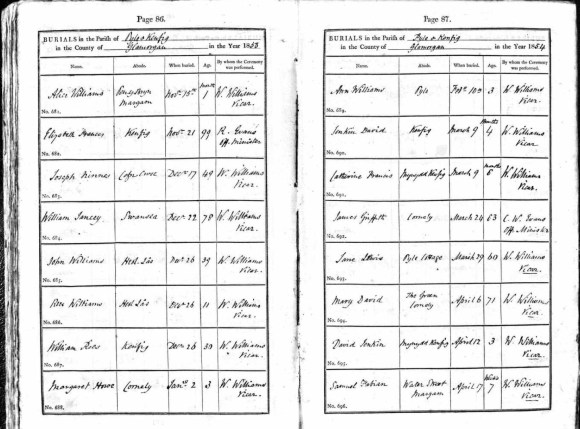 Page 86.
BURIALS in the Parish of Pyle & Kenfig
in the County of Glamorgan in the Year 1853
Name. Abode. When buried. Age. By whom the Ceremony was performed.
Alice Williams
Margam
Novr 15th
months
1
W. Williams
Vicar.
No. 681.
Elizabeth
Kenfig
Novr 21
99
R. Evans
off. Minister
No. 682.
Joseph
Decr 17
49
W. Williams
Vicar.
No. 683.
William
Swansea
Decr 22
78
W. Williams
Vicar.
No. 684.
John Williams
Decr 26
39
W. Williams
Vicar.
No. 685.
Williams
Decr 26
11
W. Williams
Vicar.
No. 686.
William Rees
Kenfig
Decr 26
30
W. Williams
Vicar.
No. 687.
Margaret
Cornely
Jany 2
3
W. Williams
Vicar.
No. 688.
Page 87.
BURIALS in the Parish of Pyle & Kenfig
in the County of Glamorgan in the Year 1854
Name. Abode. When buried. Age. By whom the Ceremony was performed.
Ann Williams
Pyle
3
W. Williams
Vicar.
No. 689.
Jenkin David
Kenfig
March 9
months
4
W. Williams
Vicar.
No. 690.
Catherine Francis
Mynydd Kenfig
March 9
months
W. Williams
Vicar.
No. 691.
James Griffith
Cornely
March 24
63
C. W. Evans
off. Minister
No. 692.
Jane Lewis
Pyle
March 29
60
W. Williams
Vicar.
No. 693.
Mary David
The Green
Cornely
April 6
71
W. Williams
Vicar
No. 694.
David Jenkin
Mynydd Kenfig
April 12
3
W. Williams
Vicar.
No. 695.
Samuel Fabian
Water Street
Margam
April 17
Weeks
7
W. Williams
Vicar.
No. 696.